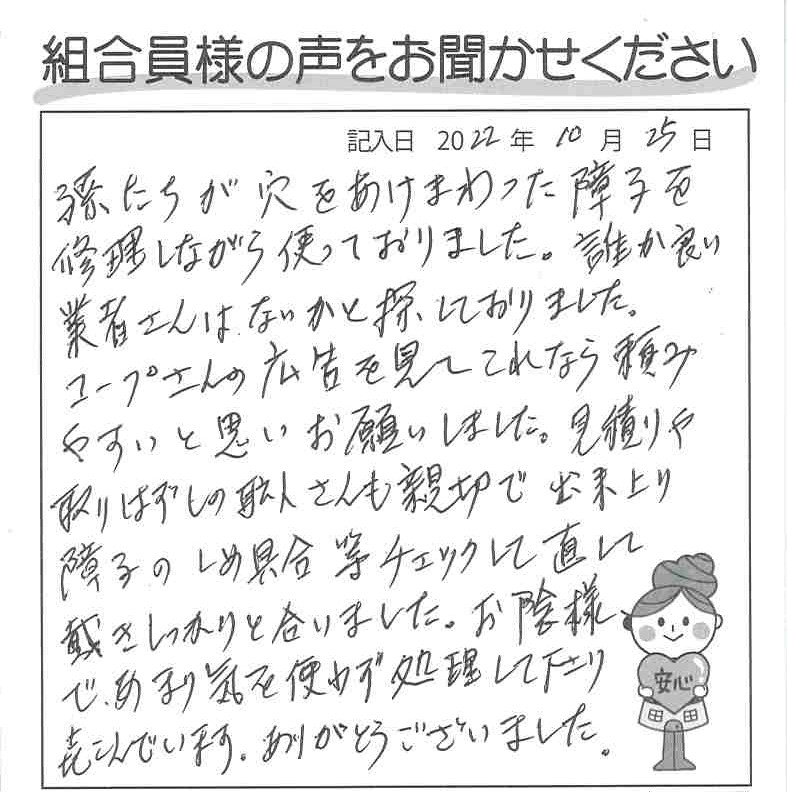 組合員様の声をお聞かせください
記入日 2022年 10月 25日
孫たちが穴をあけまわった障子を
修理しながら使っておりました。誰か良い
業者さんはないかと探しておりました。
コープさんの広告を見してれなら頼み
やすいと思いお願いしました。見積りや
取りはずしの職人さんも親切で出来上り
障子のしめ具合等チェックして直して
戴きしっかりと合いました。お陰様
で、あまり気を使わず処理して下さり
喜こんでいます。ありがとうございました。
安心